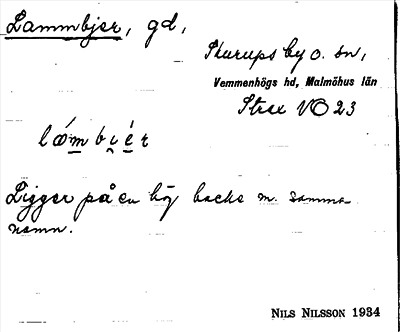 Lammbjer, gd,
Skurups by o. sn,
Vemmenhögs hd, Malmöhus län
Strax VO 23
lámbiér
Ligger på en hög backe m. samma
namn.
NILS NILSSON 1934